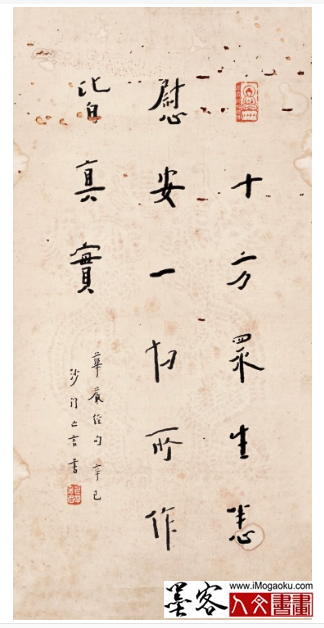 十方眾生悉
慰安一切所作
皆真實
華嚴經句辛巳
沙門亡言書
www.iMogaoku.com
墨客人文書畫